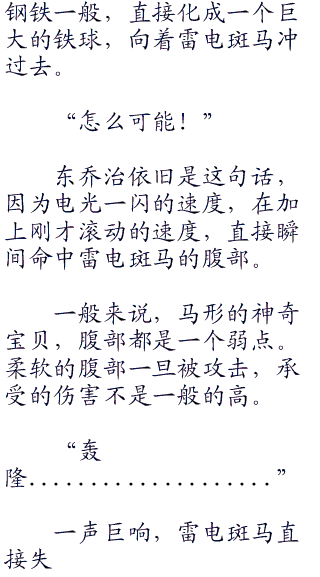 钢铁一般，直接化成一个巨
大的铁球，向着雷电斑马冲
过去。
“怎么可能！”
东乔治依旧是这句话，
因为电光一闪的速度，在加
上刚才滚动的速度，直接瞬
间命中雷电斑马的腹部。
一般来说，马形的神奇
宝贝，腹部都是一个弱点。
柔软的腹部一旦被攻击，承
受的伤害不是一般的高。
“轰
隆....................”
一声巨响，雷电斑马直
接失